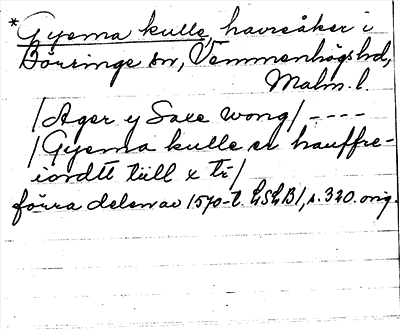 *Gyema kulle, havreåker i
Börringe sn, Vemmenhögs hd,
Malm. l.
/Ager y Saxe wong/ ----
/Gyema kulle er hauffre-
iordtt till x tr/
förra delen av 1570-t. LSLB1, s. 320. orig.